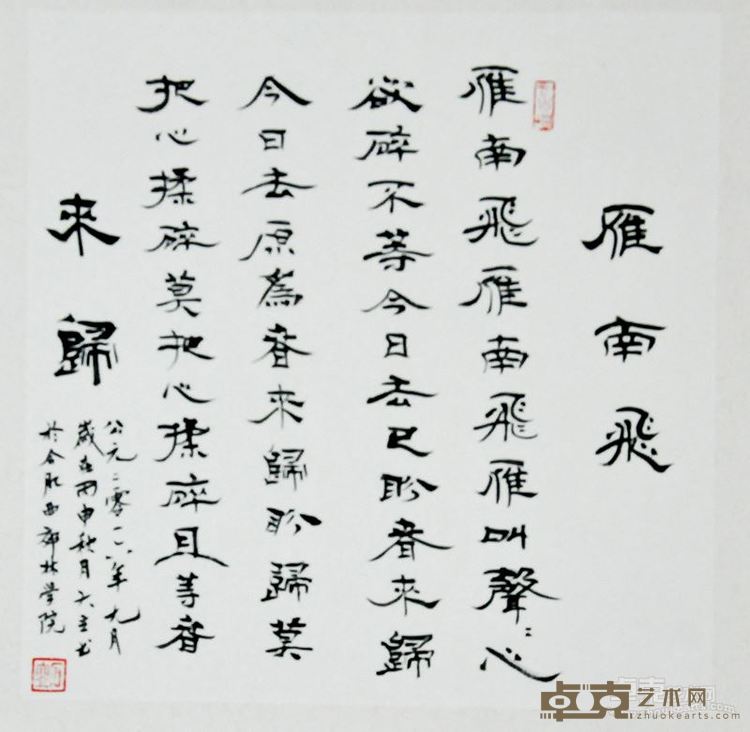 雁南飛
雁南飛雁南飛雁叫聲〻心
欲碎不等今日去已盼春來歸
今日去原為春來歸盼歸莫
把心揉碎莫把心揉碎且等春
來歸
公元二零一六年九月
歲在丙申秋月
於合肥西郊林學院
卓克艺术网
zhuokearts.com